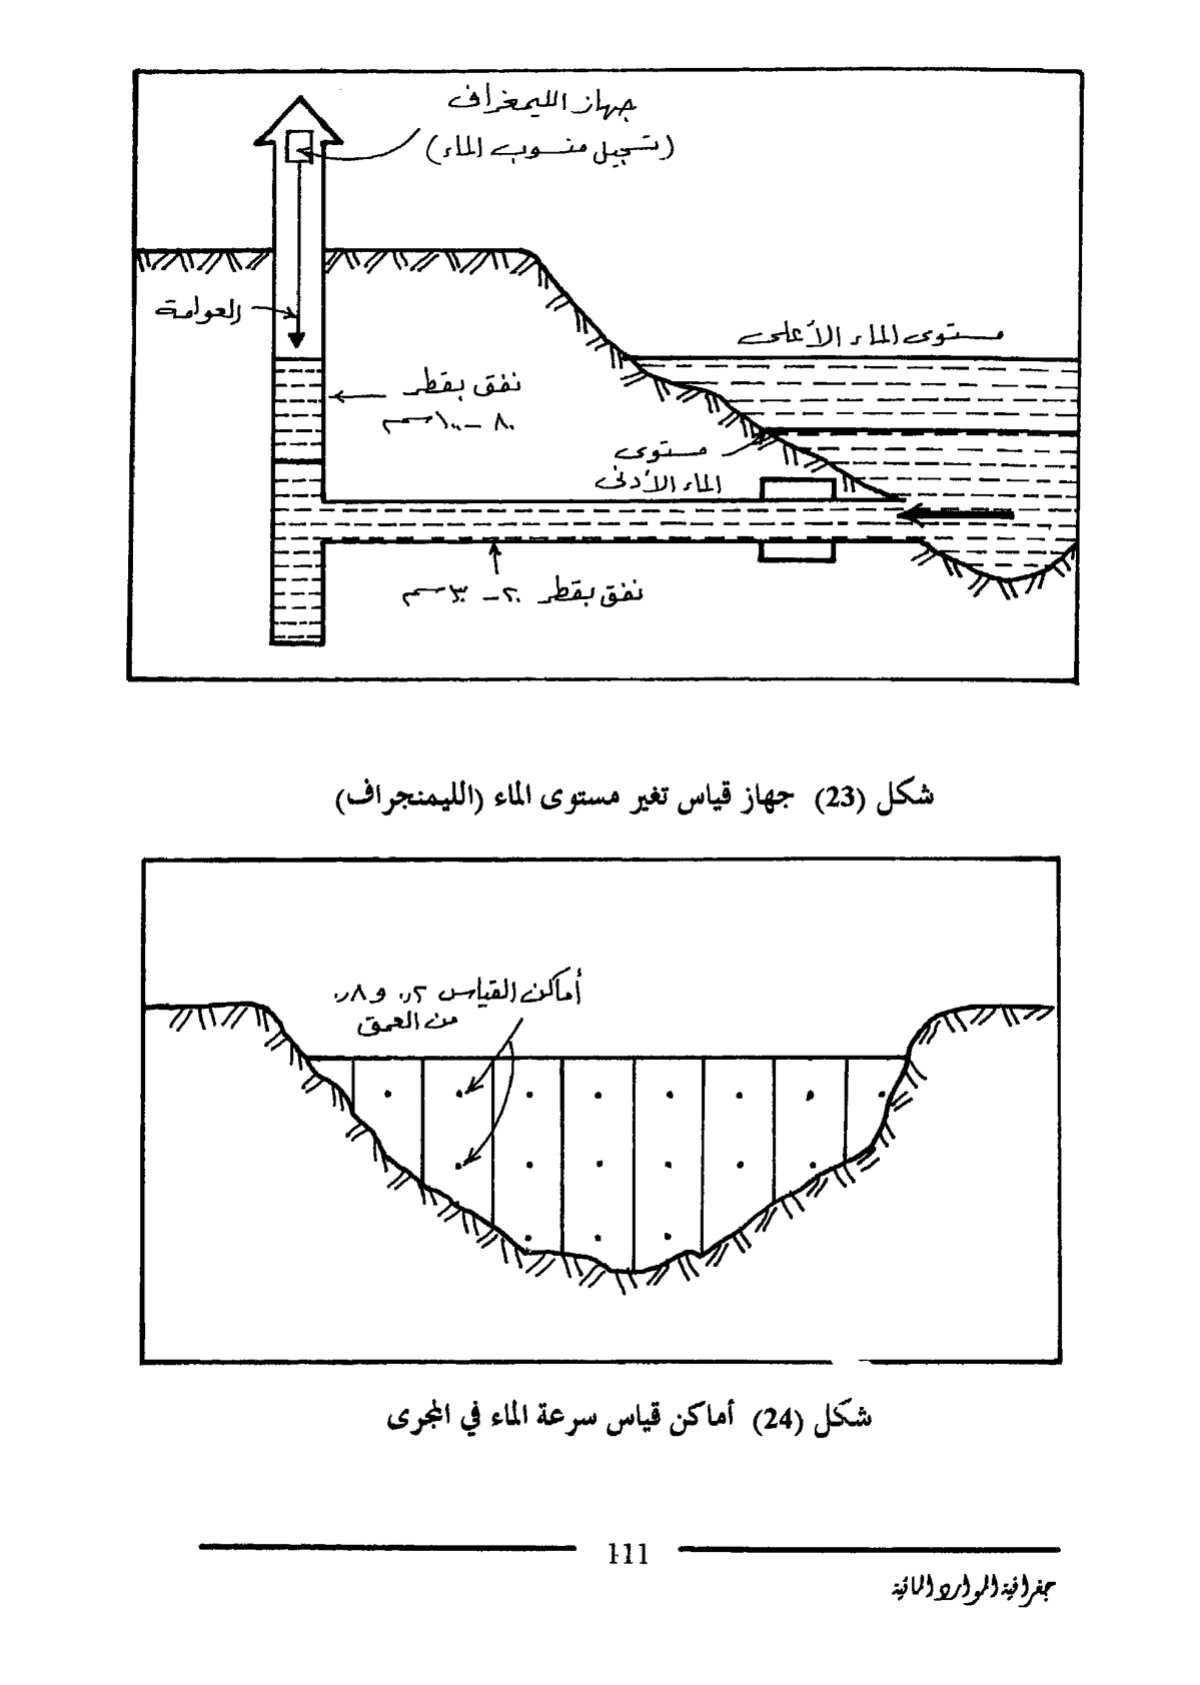 جهاز الليمغراف
(تسجيل منسوب الماء)
العوامة
مستوى الماء الأعلى
نفق بقطر
٨٠ – ١٠٠ سم
مستوى
الماء الأدنى
نفق بقطر ٢٠ – ٣٠ سم
شكل (23) جهاز قياس تغير مستوى الماء (الليمنجراف)
أماكن القياس ٠٫٢ و ٠٫٨
من العمق
شكل (24) أماكن قياس سرعة الماء في المجرى
111
جغرافية الموارد المائية